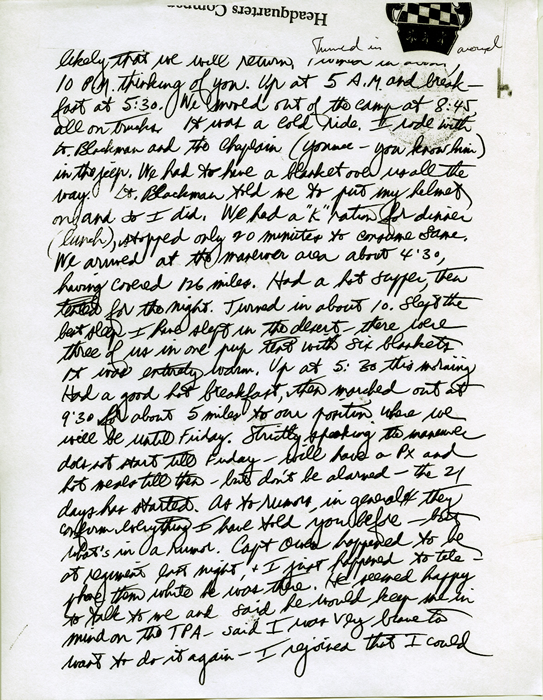 Headquarters
Turned in around
likely that we will return,
10 P.M. thinking of you. Up at 5 A.M. and break-
fast at 5:30. We moved out of the camp at 8:45
all on trucks. It was a cold ride. I rode with
Lt. Blackman and the Chaplain ( - you know him)
in the jeep. We had to have a blanket over us all the
way. Lt. Blackman told me to put my helmet
on, and so I did. We had a "K" ration for dinner
(lunch), stopped only 20 minutes to consume same.
We arrived at the maneuver area about 4:30,
having covered 126 miles. Had a hot supper, then
tented for the night. Turned in about 10. Slept the
best sleep I have slept in the desert - there were
three of us in one pup tent with six blankets
It was entirely warm. Up at 5:30 this morning
Had a good hot breakfast, then marched out at
9:30 for about 5 miles to our position where we
will be until Friday. Strictly speaking the maneuver
does not start till Friday - will have a PX and
hot meals till then - but don't be alarmed - the 21
days has started. As to rumors, in general they
conform everything I have told you before - but
what's in a rumor. Capt Owen happened to be
at regiment last night, + I just happened to tele-
phone them while he was there. He seemed happy
to talk to me and said he would keep me in
mind on the TPA - said I was very brave to
want to do it again - I rejoined that I could